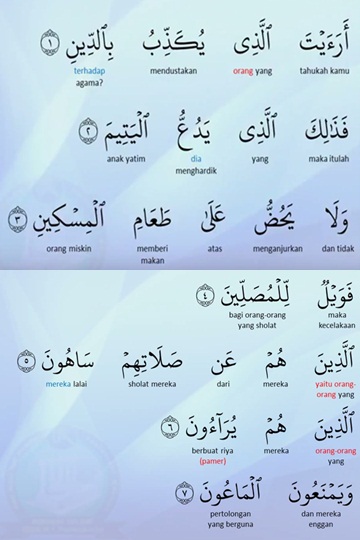 أَرَءَيْتَ ٱلَّذِى يُكَذِّبُ بِٱلدِّينِ ١
tahukah kamu orang yang mendustakan terhadap
agama?
فَذَٰلِكَ ٱلَّذِى يَدُعُّ ٱلْيَتِيمَ ٢
maka itulah yang dia anak yatim
menghardik
وَلَا يَحُضُّ عَلَىٰ طَعَامِ ٱلْمِسْكِينِ ٣
dan tidak menganjurkan atas memberi orang miskin
makan
فَوَيْلٌ لِّلْمُصَلِّينَ ٤
maka bagi orang-orang
kecelakaan yang sholat
ٱلَّذِينَ هُمْ عَن صَلَاتِهِمْ سَاهُونَ ٥
yaitu orang- mereka dari sholat mereka mereka lalai
orang yang
ٱلَّذِينَ هُمْ يُرَآءُونَ ٦
orang-orang mereka berbuat riya
yang (pamer)
وَيَمْنَعُونَ ٱلْمَاعُونَ ٧
dan mereka pertolongan
enggan yang berguna